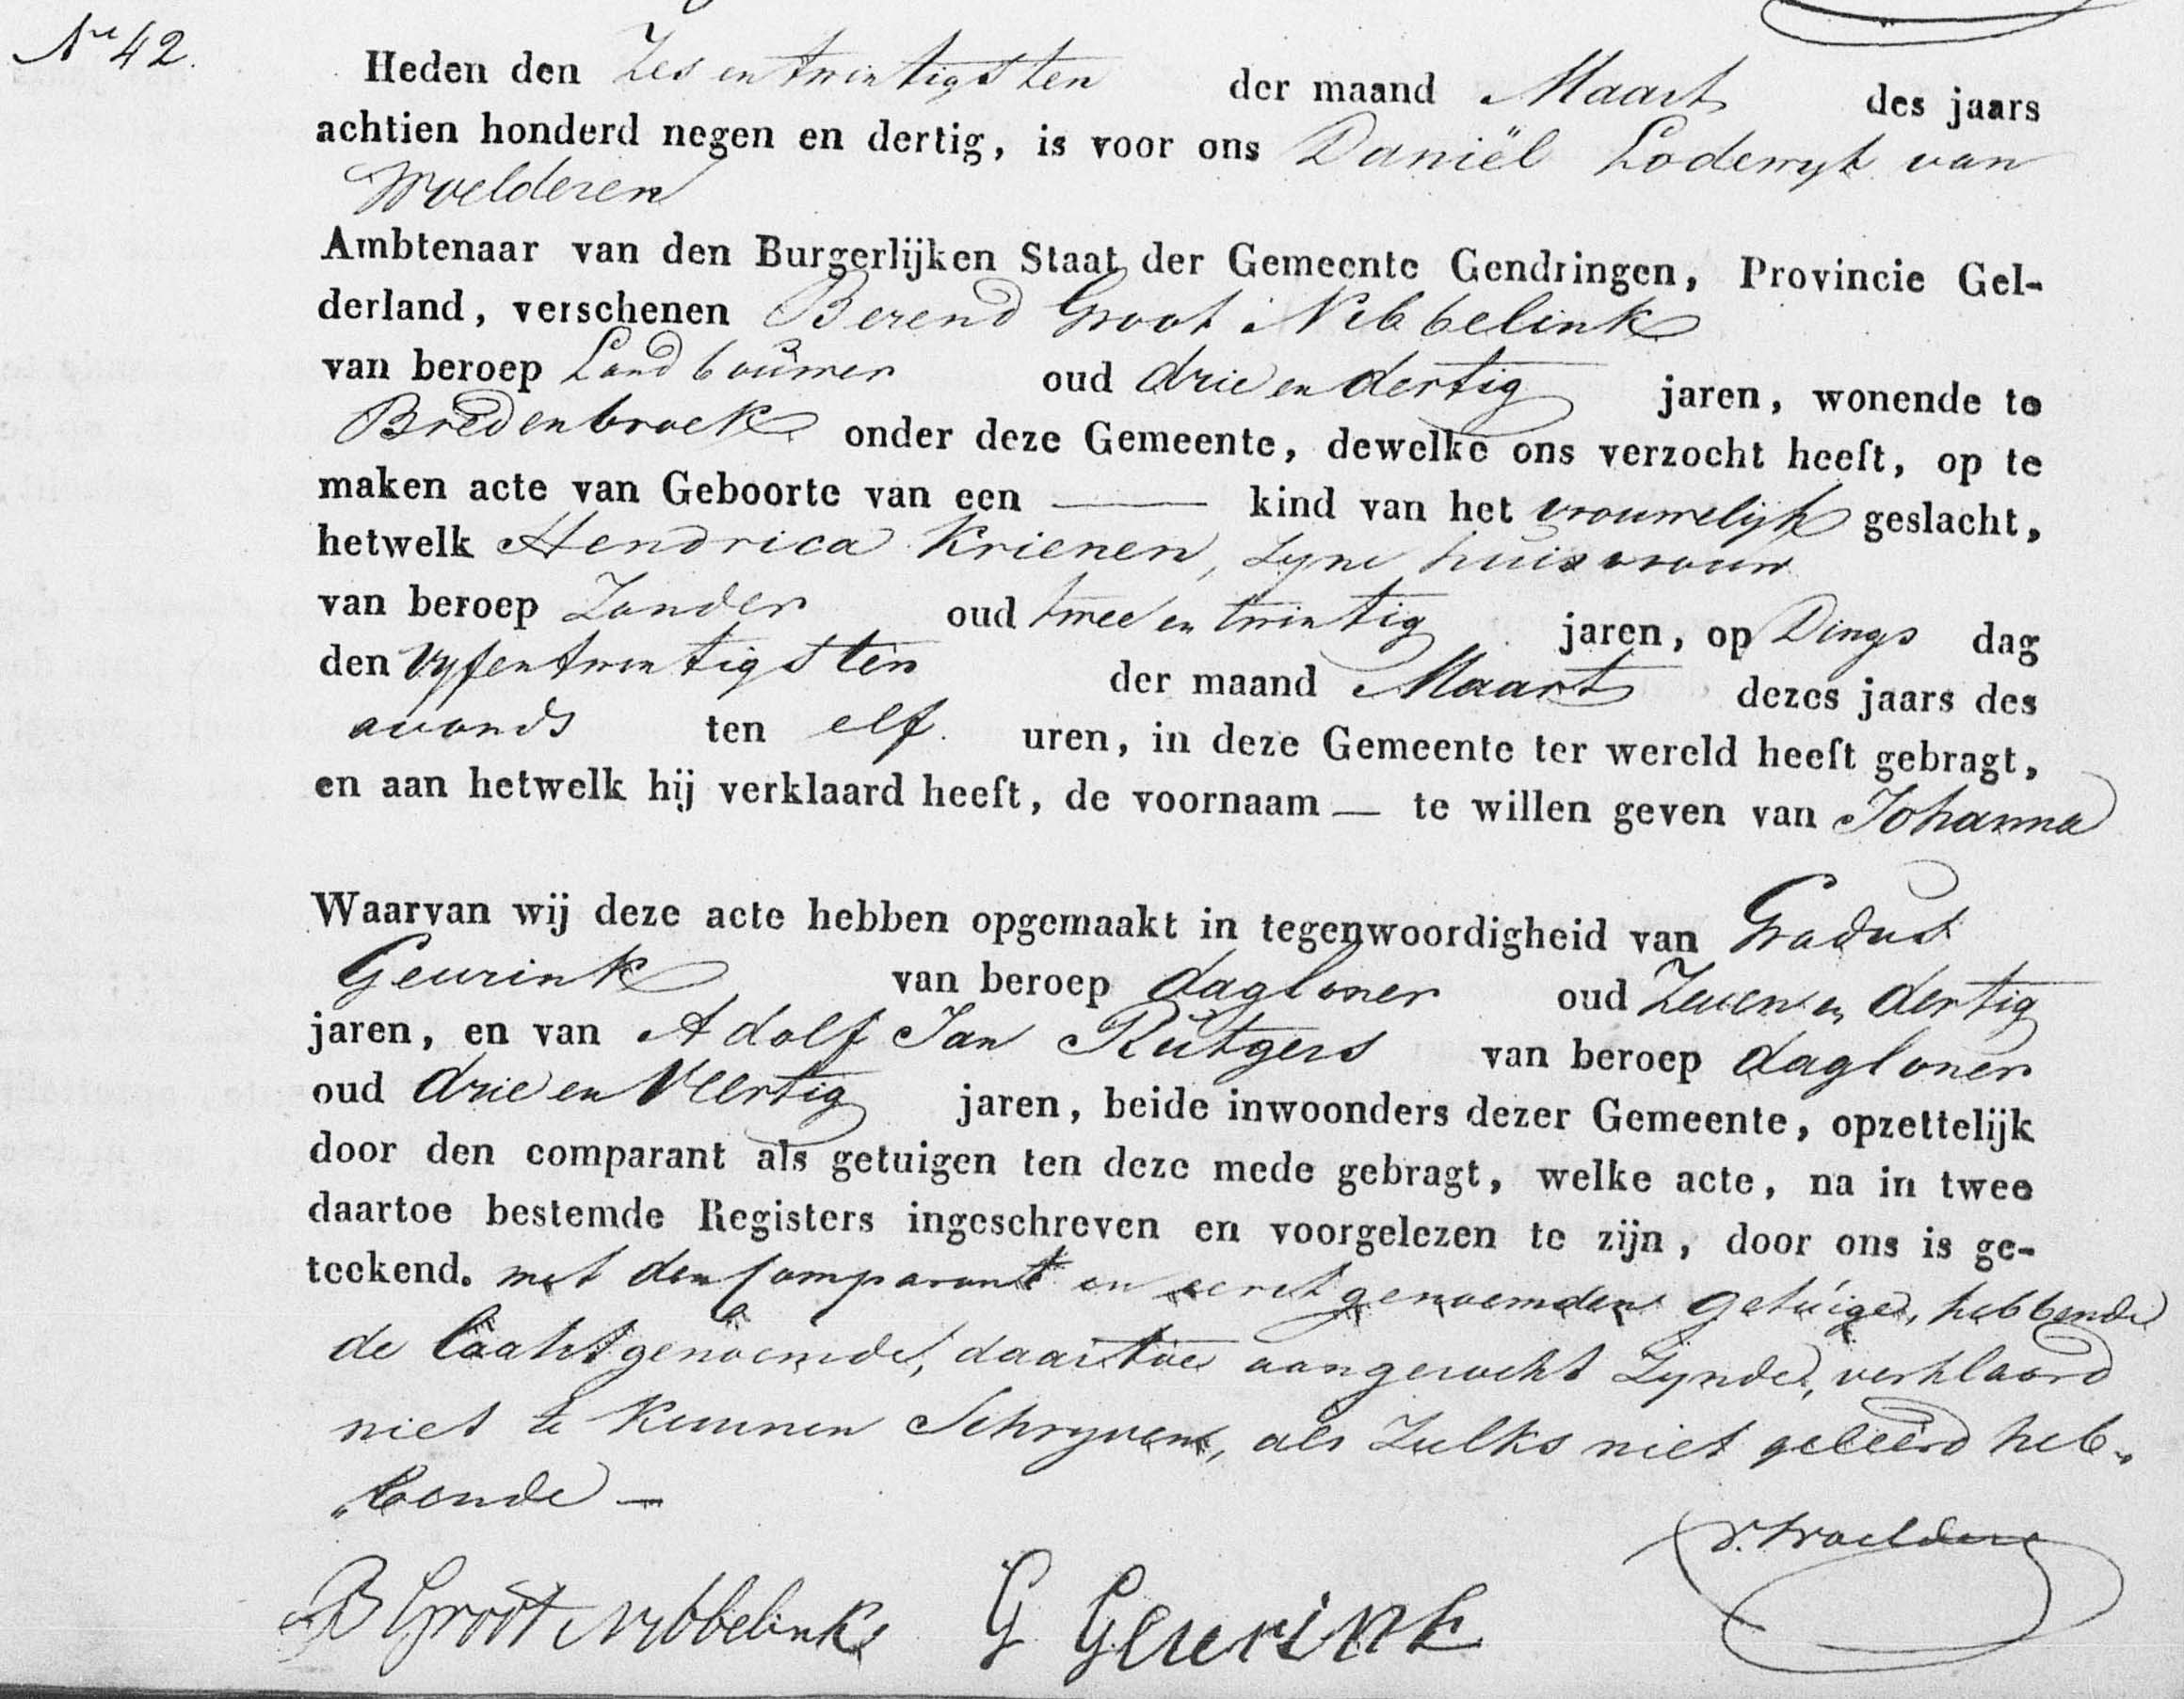 No 42.
Heden den Zes en twintigsten der maand Maart des jaars
achtien honderd negen en dertig, is voor ons Daniël Lodewyk van
Woelderen
Ambtenaar van den Burgerlijken Staat der Gemeente Gendringen, Provincie Gel-
derland, verschenen Berend Groot Nebbelink
van beroep Landbouwer oud drie en dertig jaren, wonende te
Bredenbroek onder deze Gemeente, dewelke ons verzocht heeft, op te
maken acte van Geboorte van een —— kind van het vrouwelijk geslacht,
hetwelk Hendrica Krienen, zyne huisvrouw
van beroep Zonder oud twee en twintig jaren, op Dings dag
den vyfentwintigsten der maand Maart dezes jaars des
avonds ten elf. uren, in deze Gemeente ter wereld heeft gebragt,
en aan hetwelk hij verklaard heeft, de voornaam — te willen geven van Johanna
Waarvan wij deze acte hebben opgemaakt in tegenwoordigheid van Gradus
Geurink van beroep dagloner oud Zeven en dertig
jaren, en van Adolf Jan Rutgers van beroep dagloner
oud drie en Veertig jaren, beide inwoonders dezer Gemeente, opzettelijk
door den comparant als getuigen ten deze mede gebragt, welke acte, na in twee
daartoe bestemde Registers ingeschreven en voorgelezen te zijn, door ons is ge-
teekend. met den Comparant en eerstgenoemden getuige, hebbende
de laatstgenoemde, daartoe aangezocht Zynde, verklaard
niet te kunnen Schryven, als Zulks niet geleerd heb-
„bende —
v. Woelderen
B Groot Nebbelink G Geurink